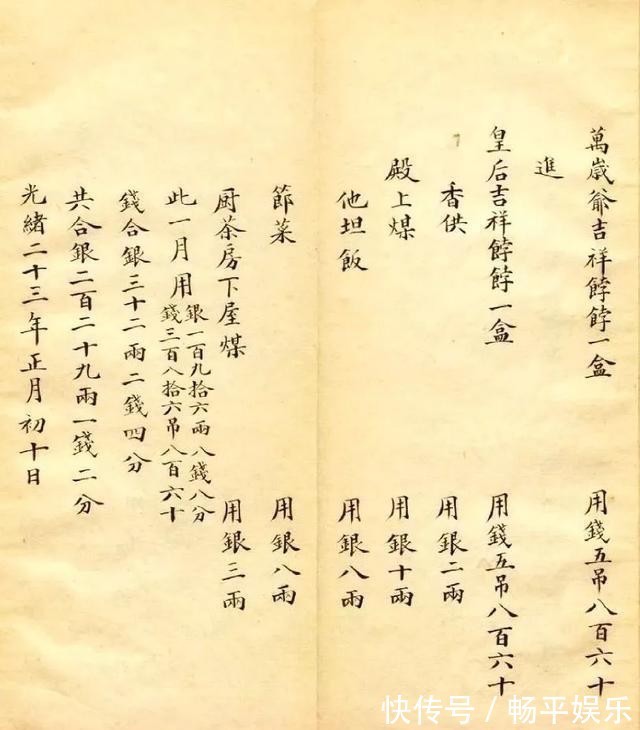 萬歲爺吉祥餑餑一盒 用錢五吊八百六十
進
皇后吉祥餑餑一盒 用錢五吊八百六十
香供 用銀二兩
殿上煤 用銀十兩
他坦飯 用銀八兩
節菜 用銀八兩
厨茶房下屋煤 用銀三兩
此一月用銀一百九拾六兩八錢八分
錢三百八拾六吊八百六十
錢合銀三十二兩二錢四分
共合銀二百二十九兩一錢二分
光緒二十三年正月初十日
快传号/畅平娱乐